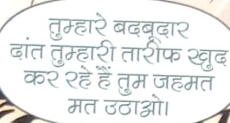 तुम्हारे बदबूदार
दांत तुम्हारी तारीफ खुद
कर रहे हैं तुम जहमत
मत उठाओ।